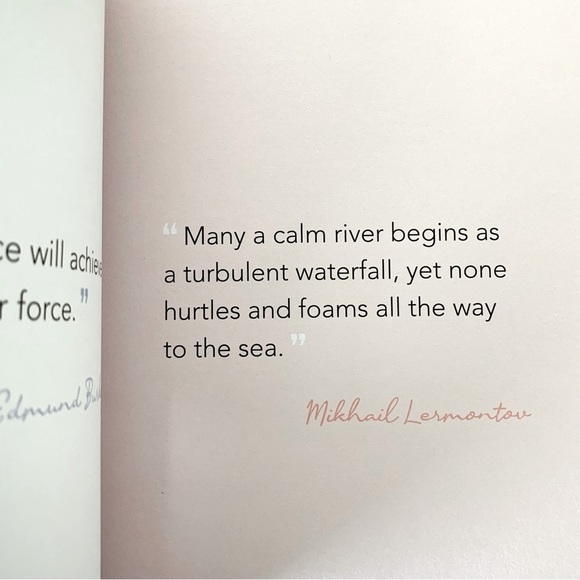 will
force.”
Edmund
“ Many a calm river begins as
a turbulent waterfall, yet none
hurtles and foams all the way
to the sea. ”
Mikhail Lermontov